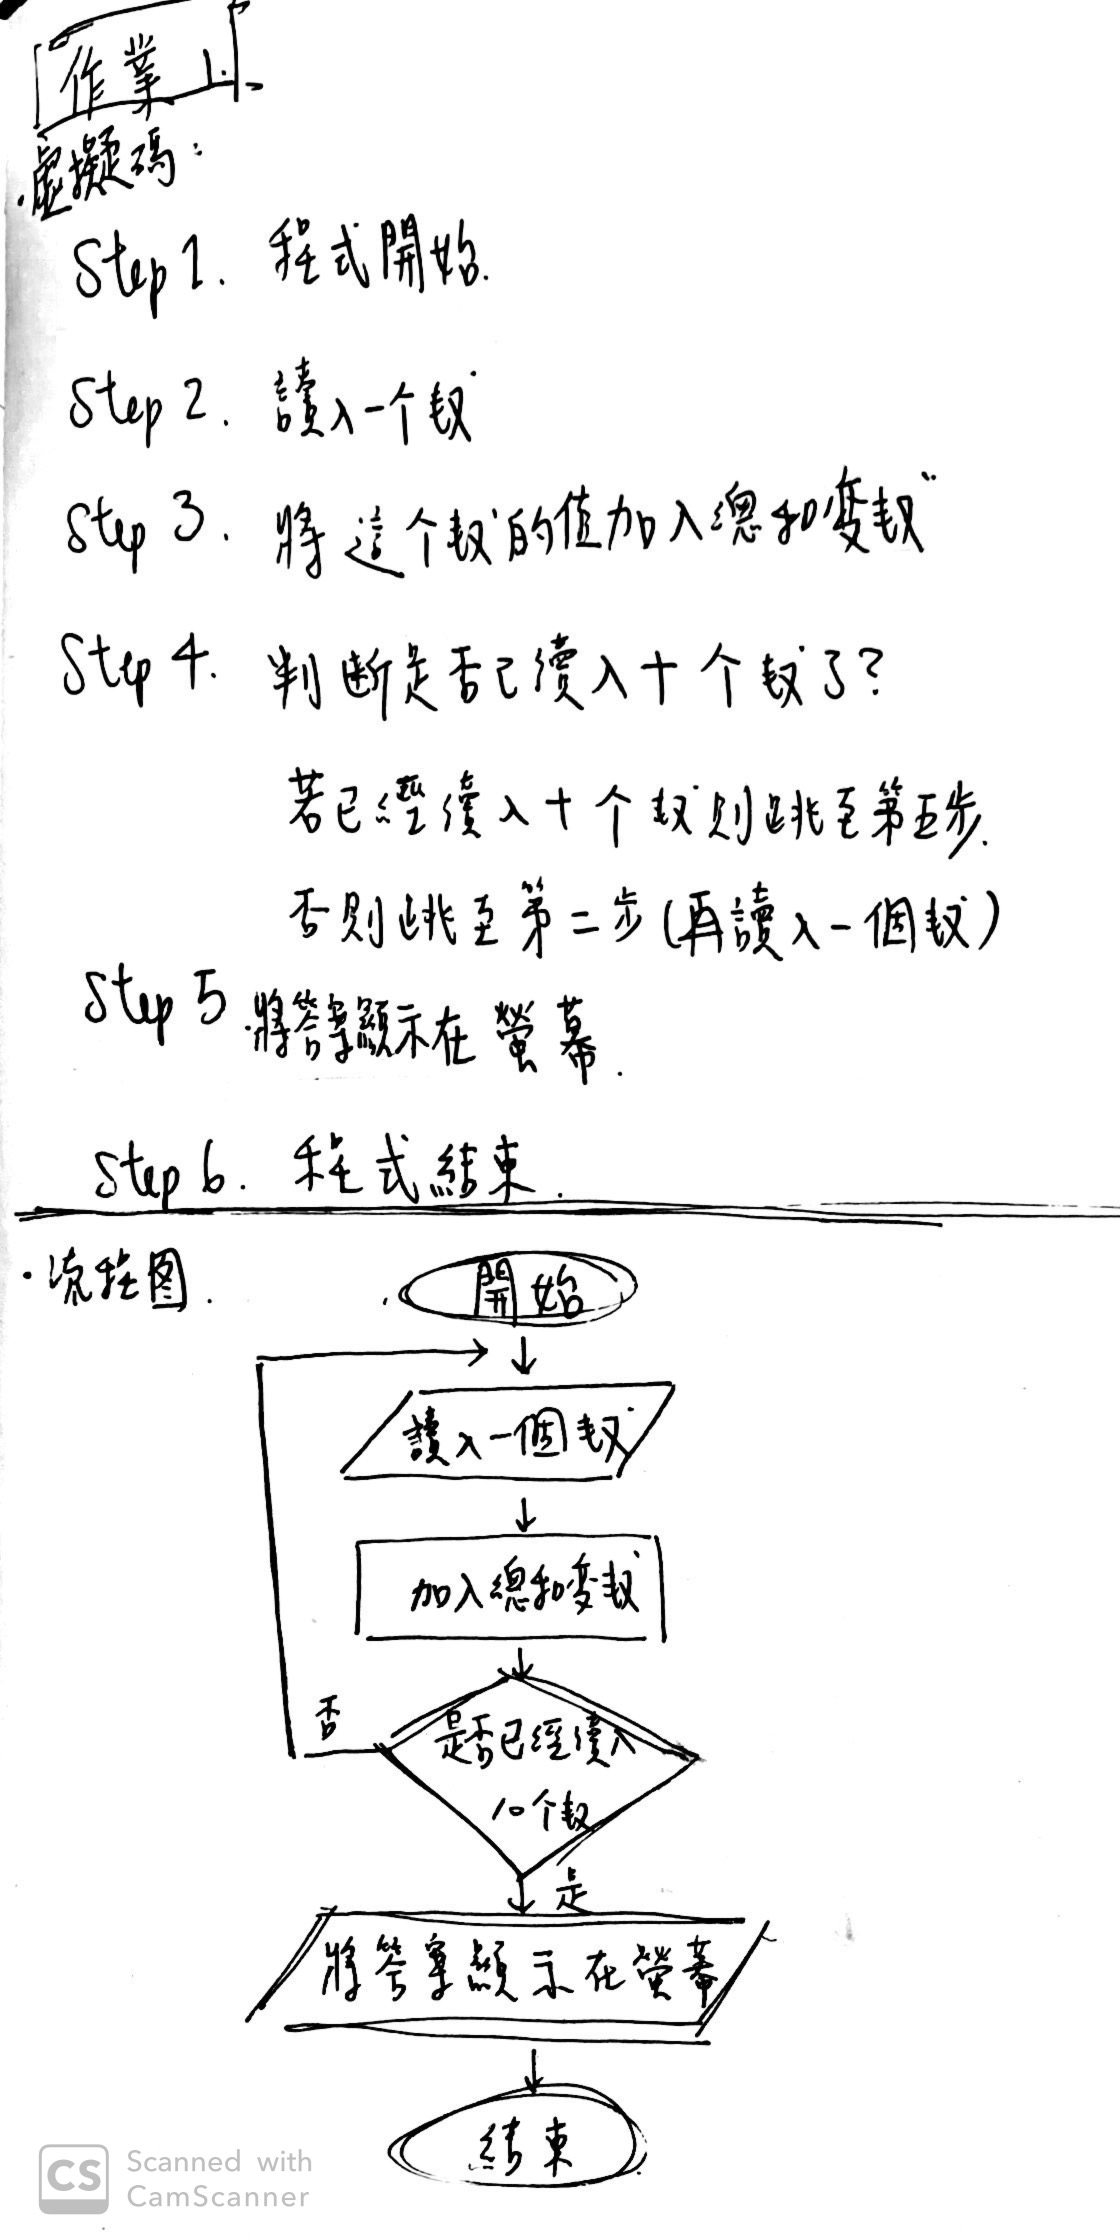 作業 1.
·虛擬碼：
Step 1. 程式開始.
Step 2. 讀入一个数
Step 3. 將這个数的值加入總和变数
Step 4. 判斷是否已讀入十个数了?
若已經讀入十个数則跳至第五步.
否則跳至第二步(再讀入一個数)
Step 5.將答案顯示在螢幕.
Step 6. 程式結束.
·流程图.
開始
讀入一個数
加入總和变数
是否已經讀入
10个数
否
是
將答案顯示在螢幕
結束
CS Scanned with
CamScanner